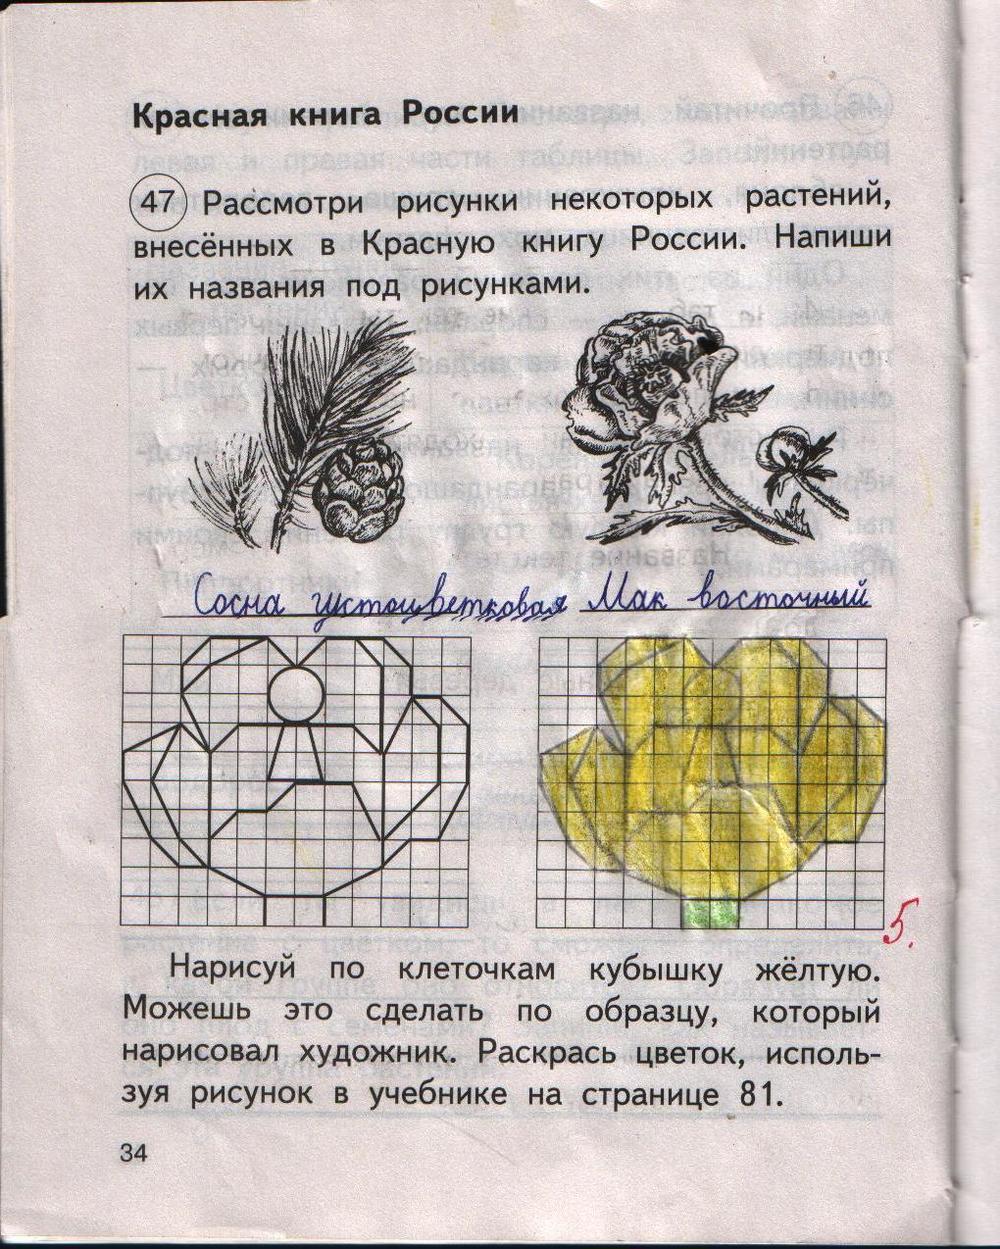 Красная книга России
47 Рассмотри рисунки некоторых растений,
внесённых в Красную книгу России. Напиши
их названия под рисунками.
Сосна густоцветковая Мак восточный
5.
Нарисуй по клеточкам кубышку жёлтую.
Можешь это сделать по образцу, который
нарисовал художник. Раскрась цветок, исполь-
зуя рисунок в учебнике на странице 81.
34